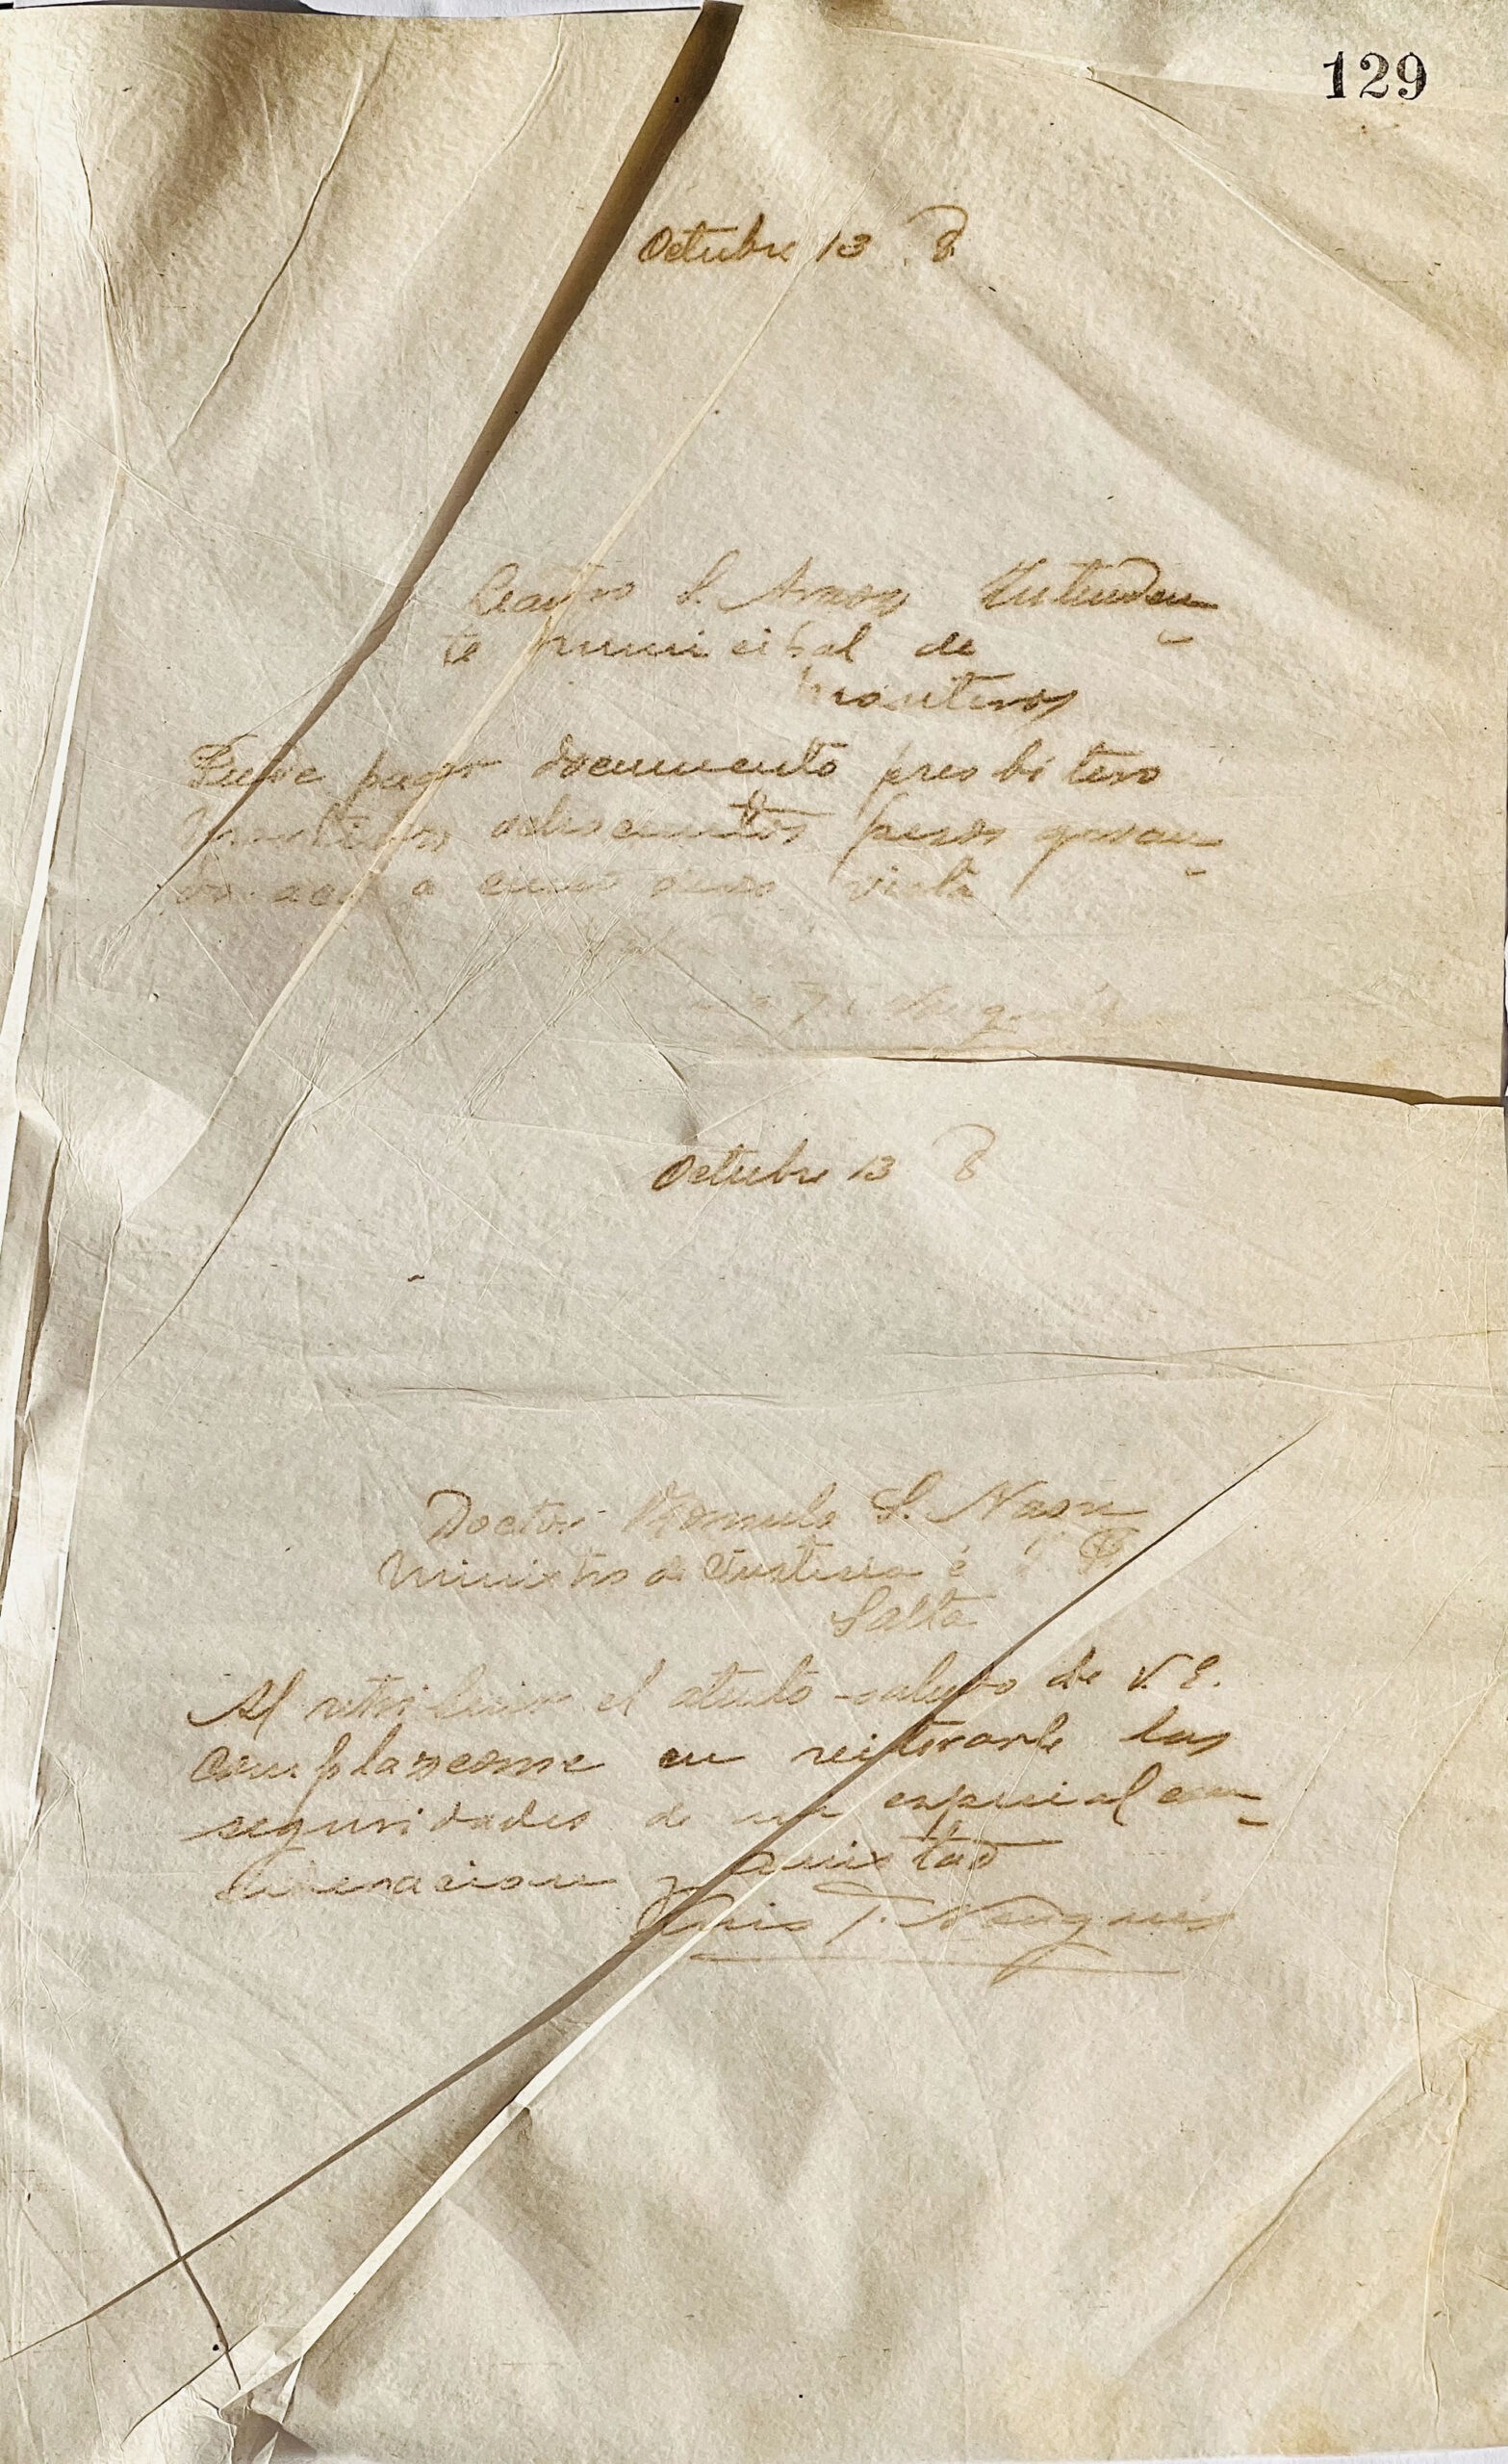 129
Octubre 13 8
S. Amon Intenden-
te municipal de
Monteros
Puede pagar documento presbitero
ochocientos pesos giran-
do a vista
Octubre 13 8
Doctor Romulo S. Naon
Ministro de Justicia é I. P.
Salta
Al retribuir el atento saludo de V. E.
complazcome en reiterarle las
seguridades de mi especial con-
sideracion y amistad
Luis F. Nougués